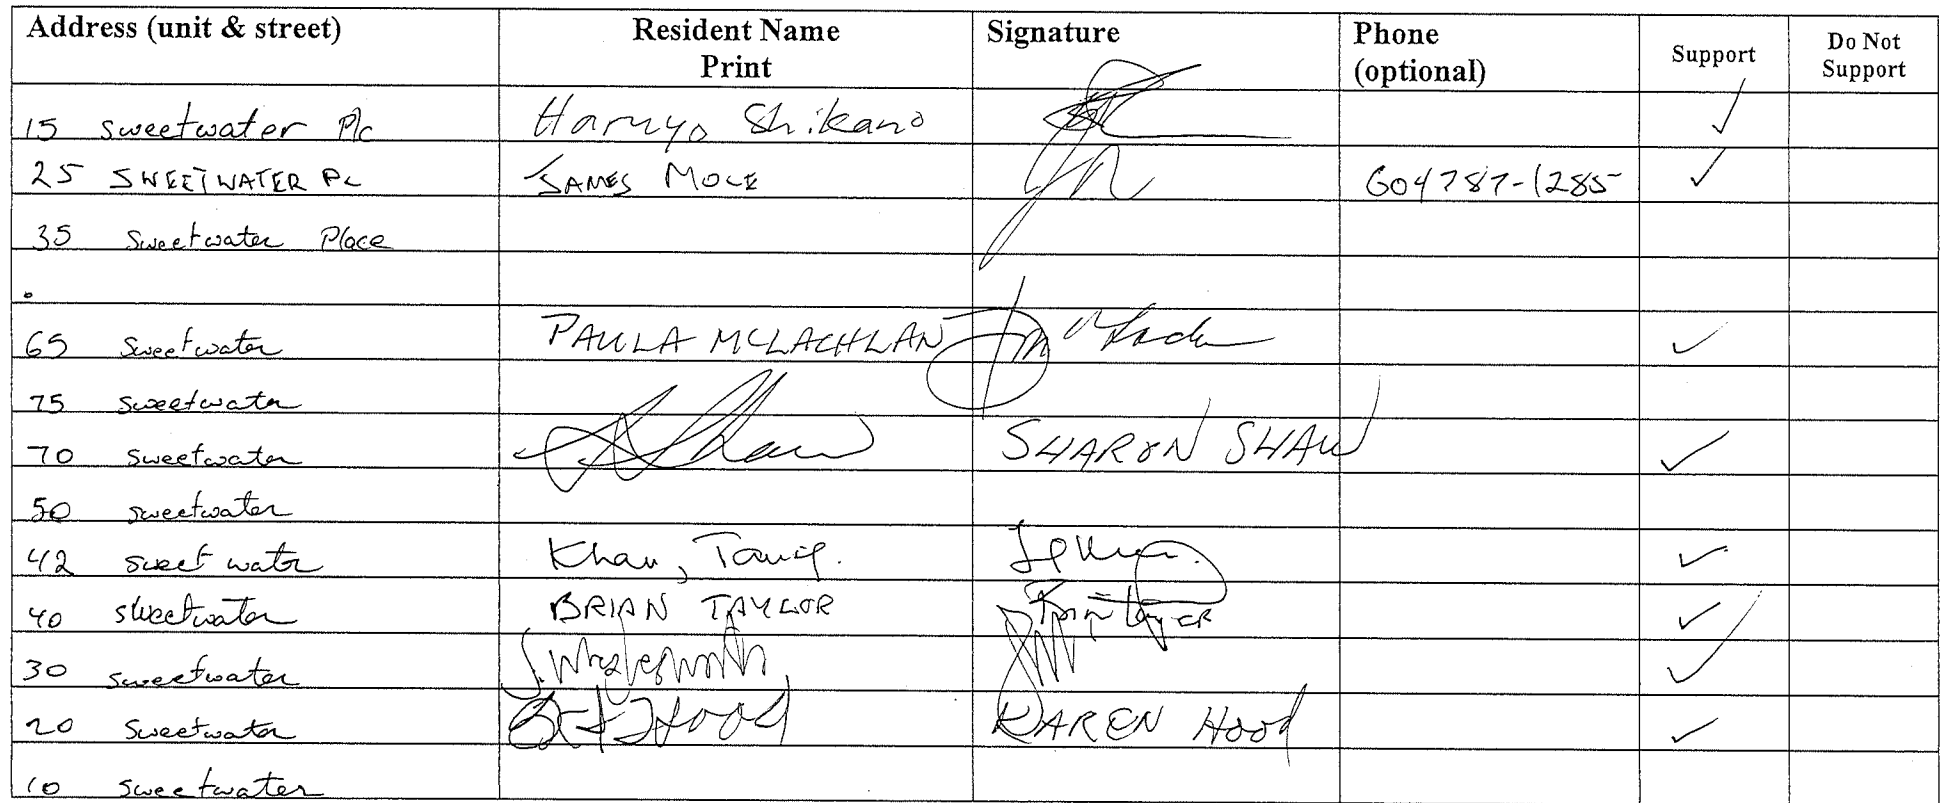 Address (unit & street) Resident Name Signature Phone Support Do Not
Print (optional) Support
15 sweetwater Plc Haruyo Shikano ✓
25 SWEETWATER PL JAMES MOLE 604 787-1285 ✓
35 Sweetwater Place
65 Sweetwater PAULA MCLACHLAN ✓
75 sweetwater
70 sweetwater Shaw SHARON SHAW ✓
50 sweetwater
42 sweet water Khan, Tariq. ✓
40 sweetwater BRIAN TAYLOR ✓
30 sweetwater ✓
20 sweetwater Hood KAREN Hood ✓
10 sweetwater